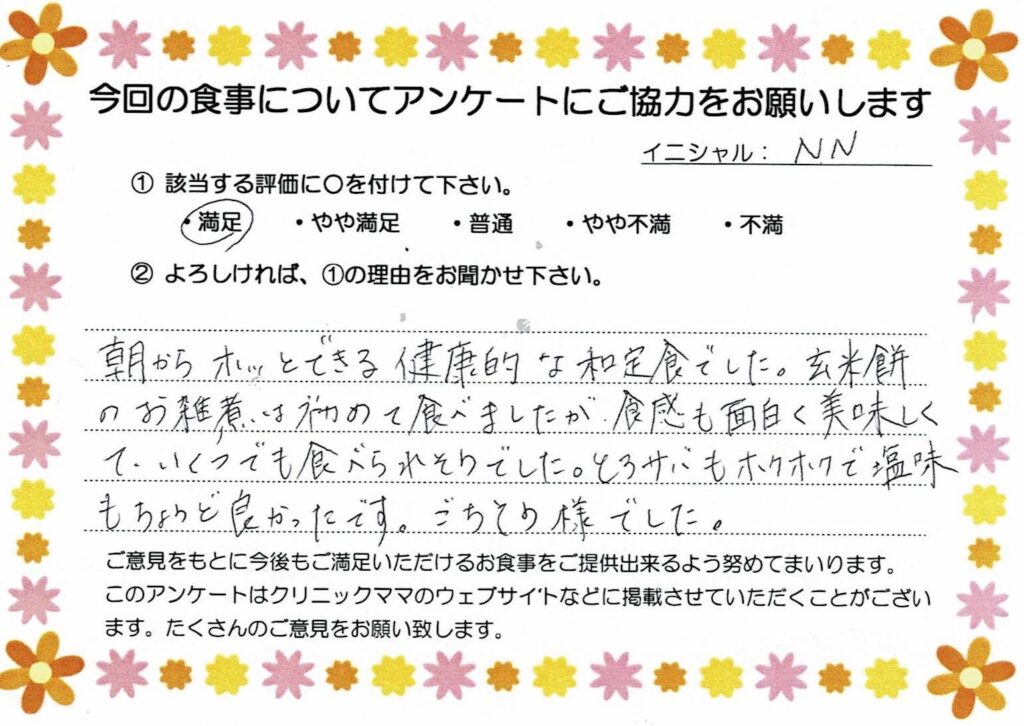 今回の食事についてアンケートにご協力をお願いします
イニシャル： NN
① 該当する評価に〇を付けて下さい。
・満足 ・やや満足 ・普通 ・やや不満 ・不満
② よろしければ、①の理由をお聞かせ下さい。
朝からホッとできる健康的な和定食でした。玄米餅
のお雑煮は初めて食べましたが、食感も面白く美味しく
て、いくつでも食べられそうでした。とろサバもホクホクで塩味
もちょうど良かったです。ごちそう様でした。
ご意見をもとに今後もご満足いただけるお食事をご提供出来るよう努めてまいります。
このアンケートはクリニックママのウェブサイトなどに掲載させていただくことがござい
ます。たくさんのご意見をお願い致します。